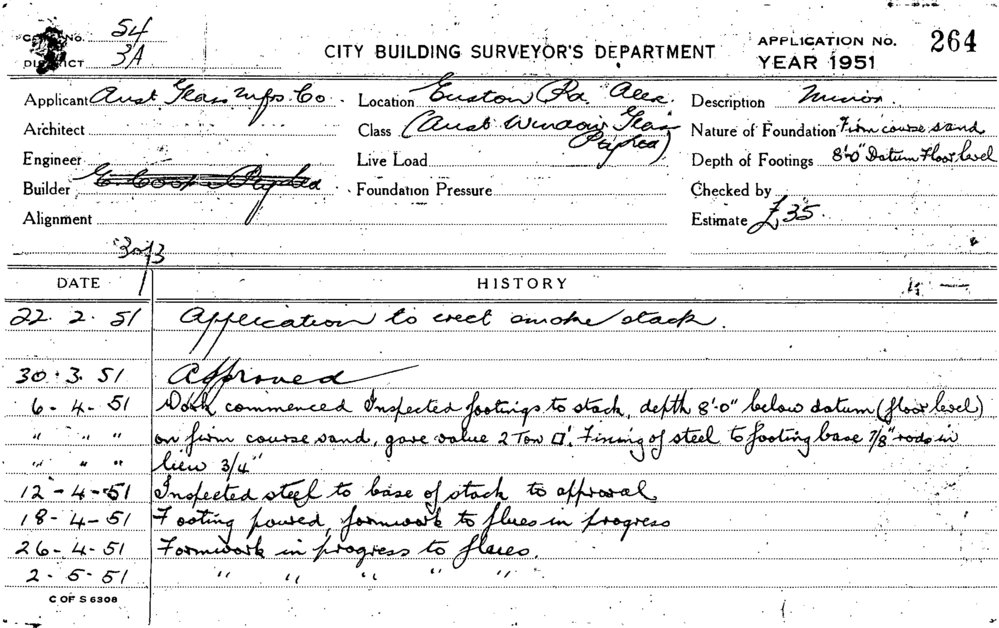 CARD No. 54
DISTRICT 3A
CITY BUILDING SURVEYOR'S DEPARTMENT
APPLICATION No. 264
YEAR 1951
Applicant Aust Glass Mfrs. Co.
Location Euston Rd. Alex.
Description Minor.
Architect
Class (Aust Window Glass
Pty Ltd)
Nature of Foundation Firm course sand
Engineer
Live Load
Depth of Footings 8'-0" Datum Floor level
Builder
Foundation Pressure
Checked by
Alignment
Estimate £35.
DATE
HISTORY
22. 2. 51 Application to erect smoke stack.
30. 3. 51 Approved
6 - 4 - 51 Work commenced Inspected footings to stack, depth 8'-0" below datum (floor level)
" " " on firm course sand, gave value 2 Ton □'. Fixing of steel to footing base 7/8" rods in
" " " lieu 3/4"
12 - 4 - 51 Inspected steel to base of stack to approval
18 - 4 - 51 Footing poured, formwork to flues in progress
26 - 4 - 51 Formwork in progress to flues.
2 - 5 - 51 " " " " "
C OF S 6308